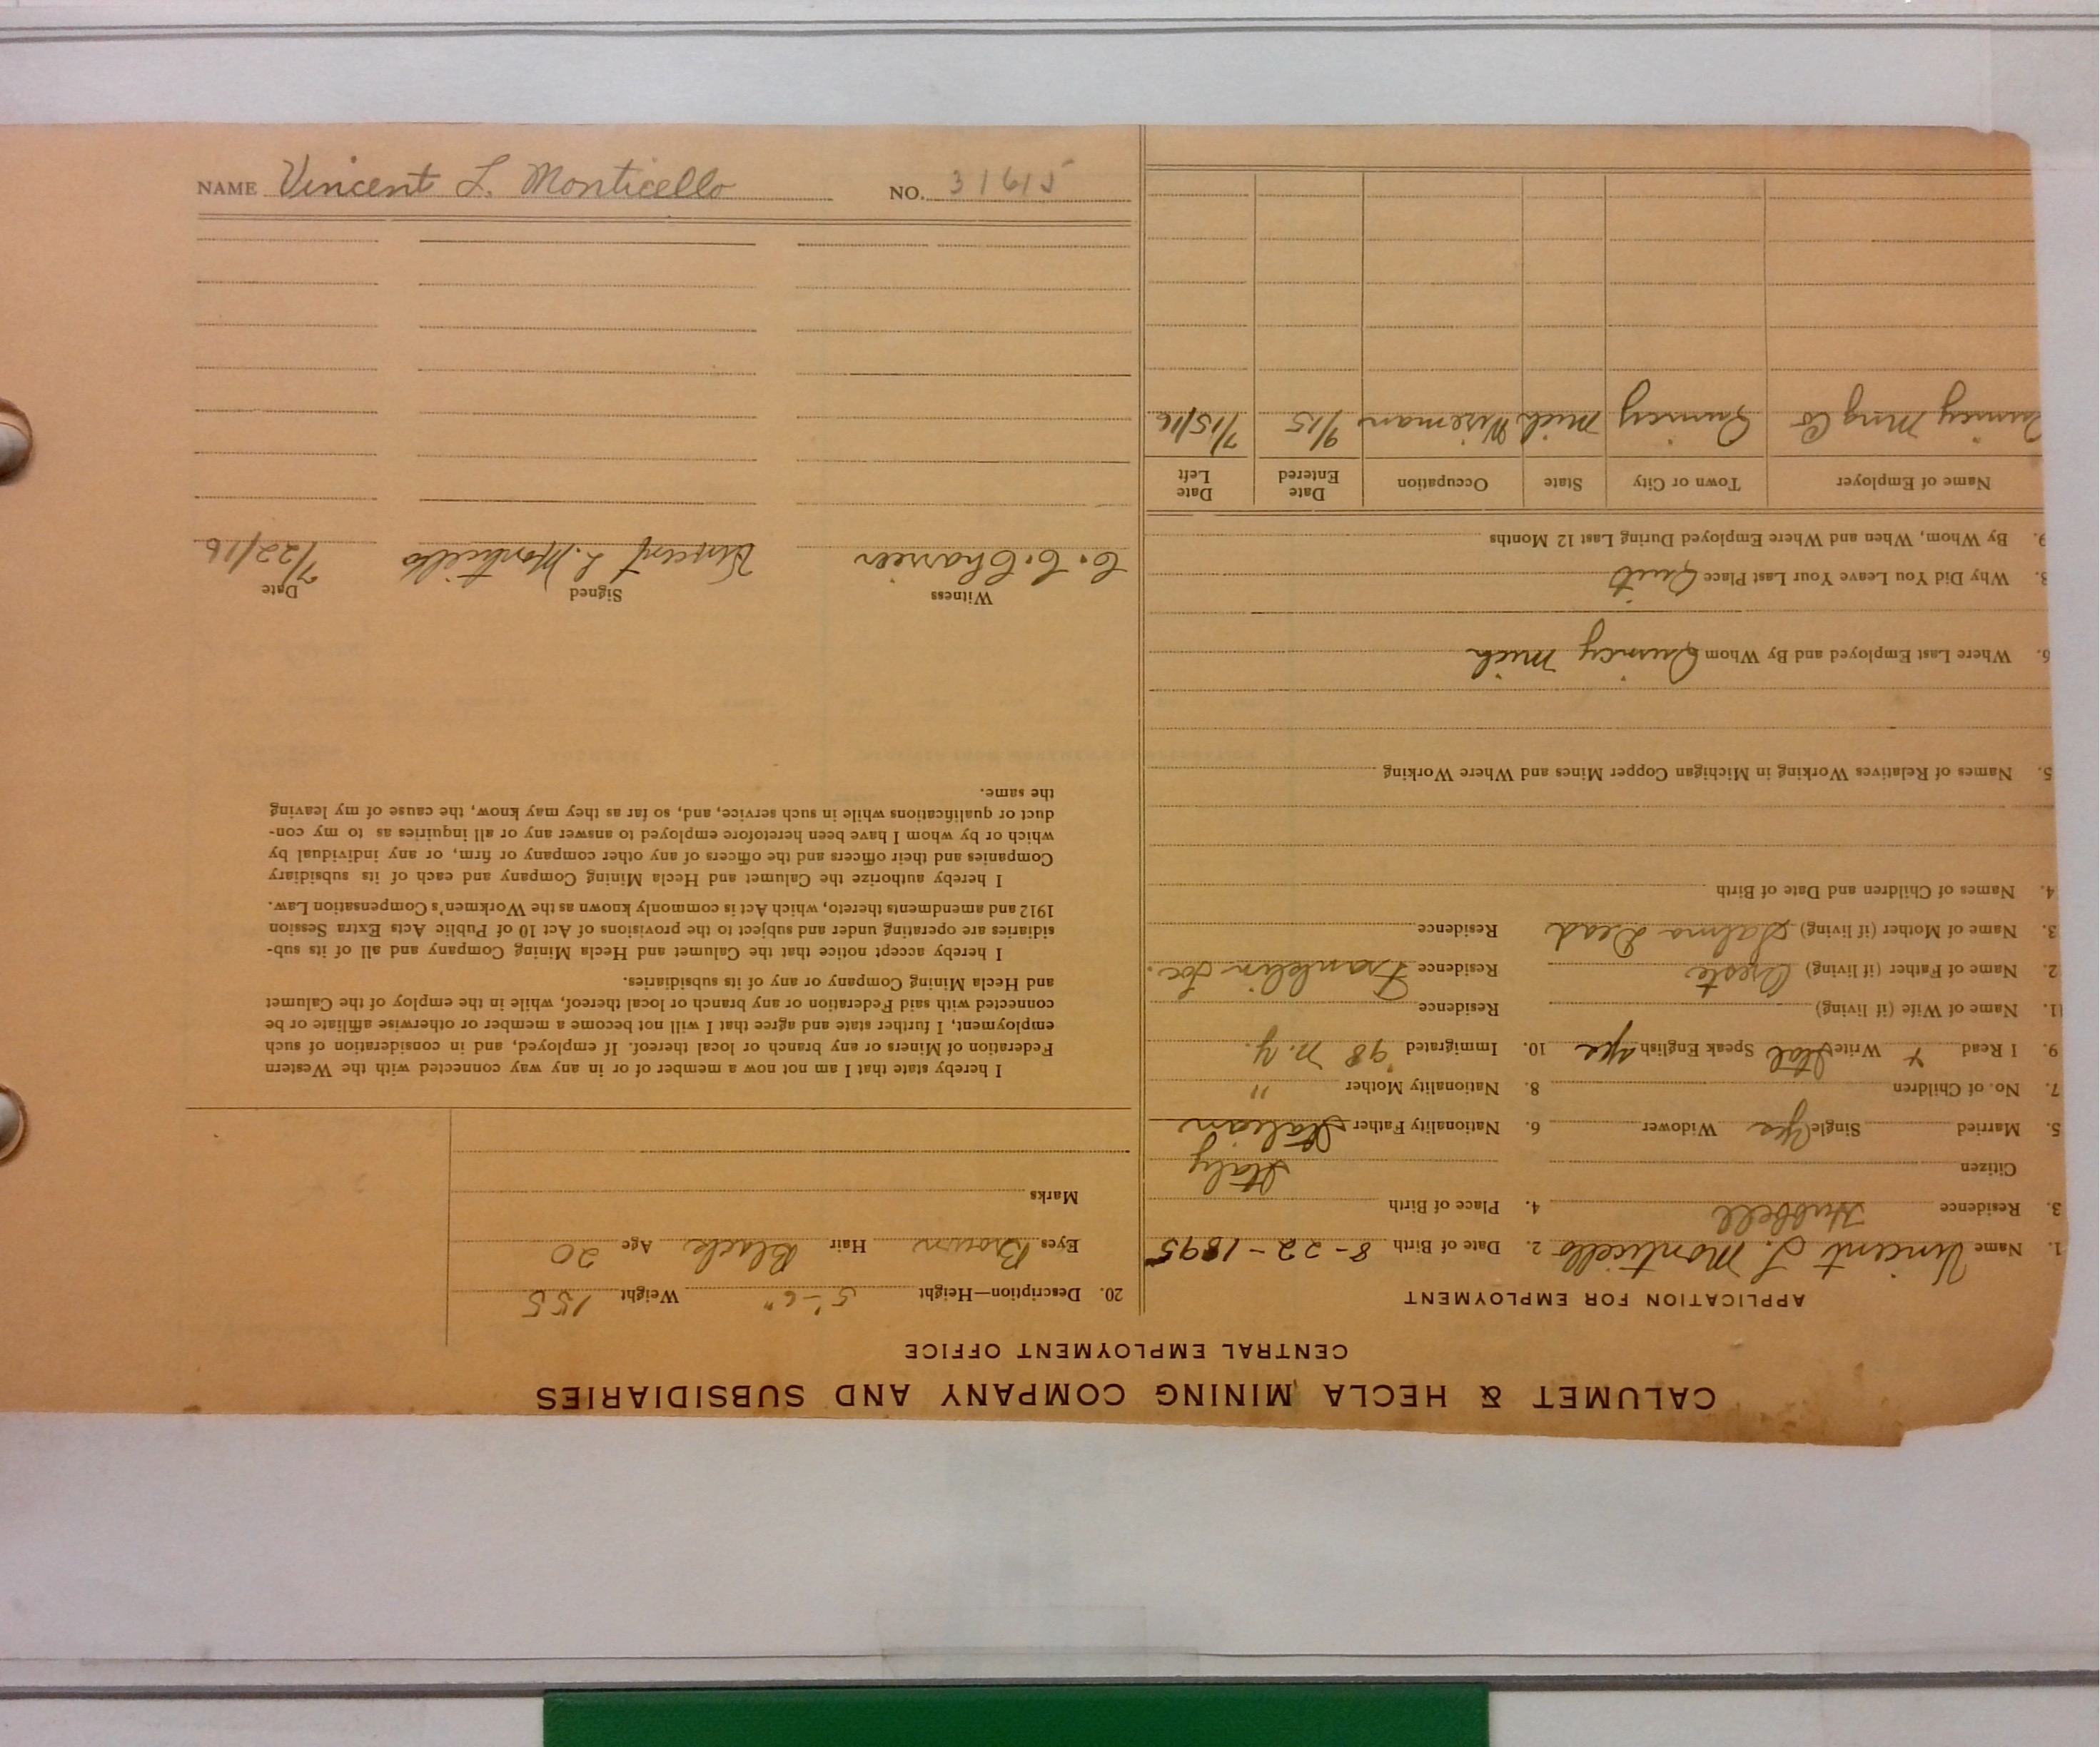 CALUMET & HECLA MINING COMPANY AND SUBSIDIARIES
CENTRAL EMPLOYMENT OFFICE
APPLICATION FOR EMPLOYMENT
1. Name Vincent L. Monticello 2. Date of Birth 8-22-1895
3. Residence Hubbell 4. Place of Birth
Citizen Italy
5. Married Single Yes Widower 6. Nationality Father Italian
7. No. of Children 8. Nationality Mother "
9. I Read & Write Ital Speak English yes 10. Immigrated 98 N.Y.
11. Name of Wife (if living) Residence
2. Name of Father (if living) Oreste Residence Franklin Loc.
3. Name of Mother (if living) Salma Dead Residence
4. Names of Children and Date of Birth
5. Names of Relatives Working in Michigan Copper Mines and Where Working
6. Where Last Employed and By Whom Quincy Mich
8. Why Did You Leave Your Last Place Quit
9. By Whom, When and Where Employed During Last 12 Months
Name of Employer Town or City State Occupation Date Entered Date Left
Quincy Mng Co Quincy Mich Wireman 9/15 7/15/16
20. Description—Height 5'-6" Weight 155
Eyes Brown Hair Black Age 20
Marks
I hereby state that I am not now a member of or in any way connected with the Western
Federation of Miners or any branch or local thereof. If employed, and in consideration of such
employment, I further state and agree that I will not become a member or otherwise affiliate or be
connected with said Federation or any branch or local thereof, while in the employ of the Calumet
and Hecla Mining Company or any of its subsidiaries.
I hereby accept notice that the Calumet and Hecla Mining Company and all of its sub-
sidiaries are operating under and subject to the provisions of Act 10 of Public Acts Extra Session
1912 and amendments thereto, which Act is commonly known as the Workmen's Compensation Law.
I hereby authorize the Calumet and Hecla Mining Company and each of its subsidiary
Companies and their officers and the officers of any other company or firm, or any individual by
which or by whom I have been heretofore employed to answer any or all inquiries as to my con-
duct or qualifications while in such service, and, so far as they may know, the cause of my leaving
the same.
Witness Signed Date
C. C. Charrier Vincent L. Monticello 7/22/16
NAME Vincent L. Monticello NO. 31615